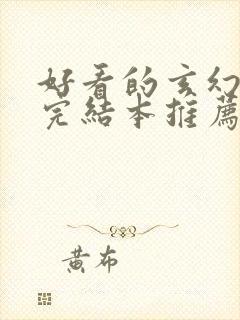 好看的玄幻
完結本推薦
黃布